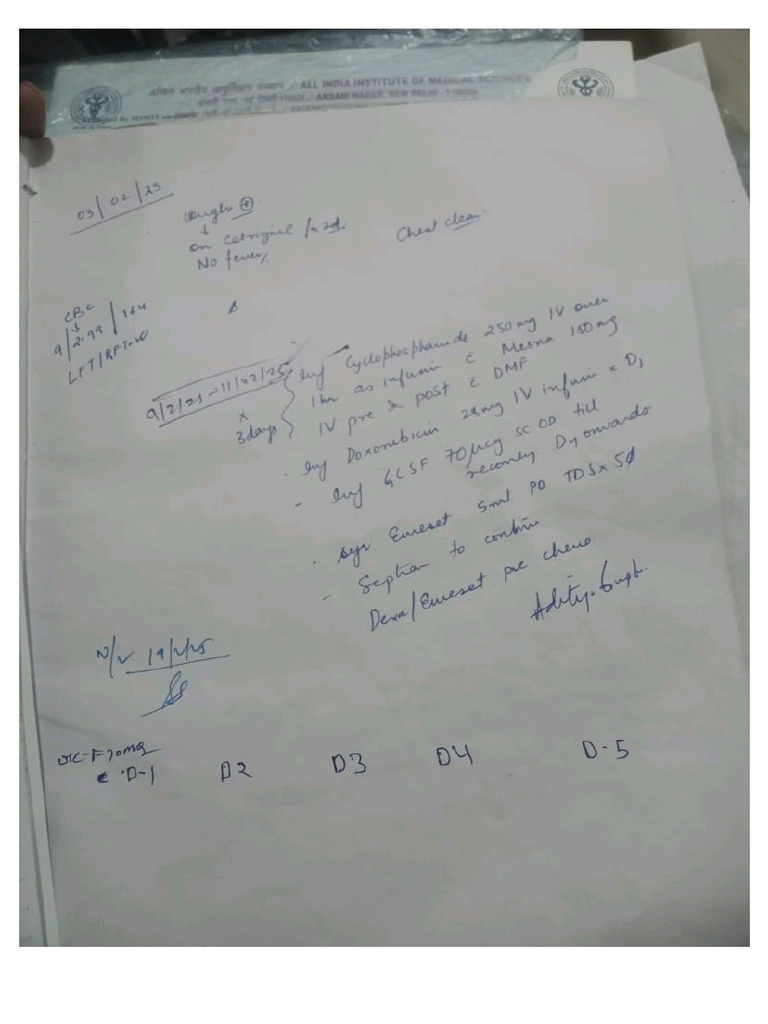 अखिल भारतीय आयुर्विज्ञान संस्थान / ALL INDIA INSTITUTE OF MEDICAL SCIENCES
ANSARI NAGAR, NEW DELHI - 110029
03/02/25
Cough (+)
↓
on Cetrizine / x 2d
No fever
Chest clear
CBC
↓
9 / 2.99 / 164
LFT/RFT-N
9/2/25 - 11/02/25
x
3 days
Inj Cyclophosphamide 250mg IV over
1hr as infusion c̄ Mesna 150mg
IV pre & post c̄ DMF
- Inj Doxorubicin 28mg IV infusion x D1
- Inj GCSF 70µcg SC OD till
recovery D4 onwards
- Syr Emeset 5ml PO TDS x 5d
- Septran to continue
Dexa/Emeset pre chemo
Aditya Gupta
N/V 19/2/25
D-1 D2 D3 D4 D-5